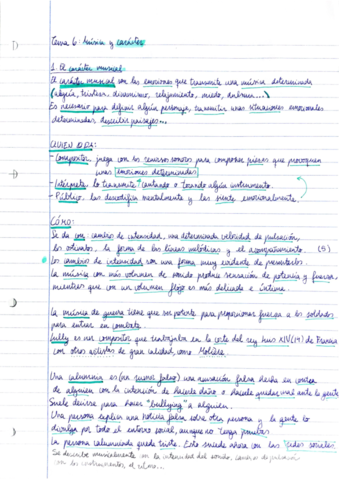 Tema 6: Música y carácter
1. El carácter musical
El carácter musical son las emociones que transmite una música determinada
(alegría, tristeza, dinamismo, relajamiento, miedo, dormir...)
Es necesario para definir algún personaje, transmitir unas situaciones emocionales
determinadas, describir paisajes...
QUIEN O DA:
- Compositor, juega con los recursos sonoros para componer piezas que provoquen
unas emociones determinadas
- Intérprete, lo transmite cantando o tocando algún instrumento.
- Público, las descodifica mentalmente y las siente emocionalmente.
CÓMO:
Se da con: cambio de intensidad, una determinada velocidad de pulsación,
los silencios, la forma de las líneas melódicas y el acompañamiento. (5)
Los cambios de intensidad son una forma muy evidente de presentarlos.
La música con más volumen de sonido produce sensación de potencia y fuerza,
mientras que con un volumen flojo es más delicada e íntima.
La música de guerra tiene que ser potente para proporcionar fuerza a los soldados
para entrar en combate.
Lully es un compositor que trabajaba en la corte del rey Luis XIV(14) de Francia
con otros artistas de gran calidad como Molière.
Una calumnia es (un rumor falso) una acusación falsa hecha en contra
de alguien con la intención de hacerle daño o hacerle quedar mal ante la gente
Suele decirse para hacer "bullying" a alguien.
Una persona explica una noticia falsa sobre otra persona y la gente lo
divulga por todo el entorno social, aunque no tenga pruebas
La persona calumniada queda triste. Esto sucede ahora con las "redes sociales"
Se describe musicalmente con la intensidad del sonido, cambio de pulsación
con los instrumentos, el ritmo...